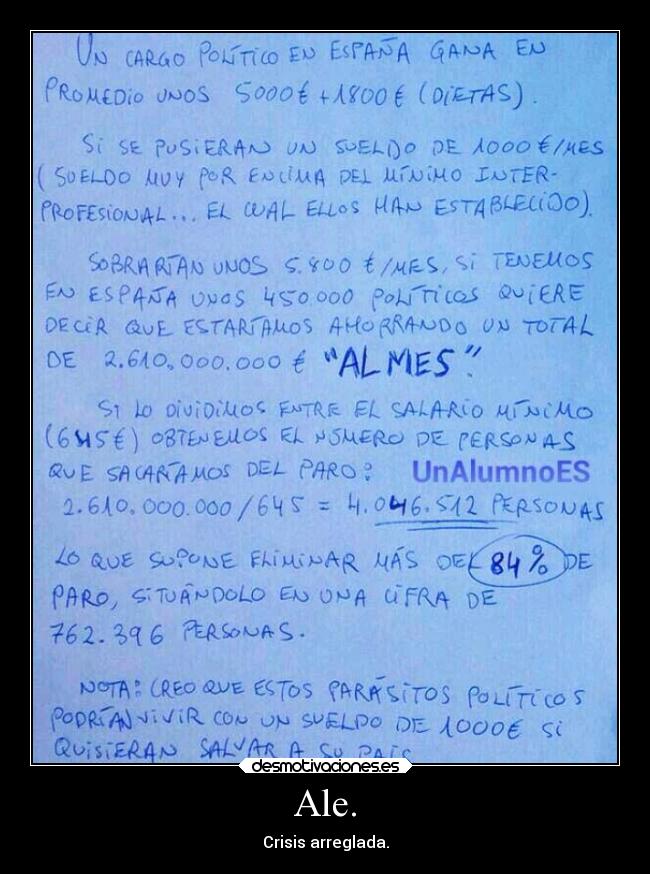 UN CARGO POLÍTICO EN ESPAÑA GANA EN
PROMEDIO UNOS 5000€ + 1800€ (DIETAS).
SI SE PUSIERAN UN SUELDO DE 1000€/MES
(SUELDO MUY POR ENCIMA DEL MÍNIMO INTER-
PROFESIONAL... EL CUAL ELLOS HAN ESTABLECIDO).
SOBRARÍAN UNOS 5.800 €/MES, SI TENEMOS
EN ESPAÑA UNOS 450.000 POLÍTICOS QUIERE
DECIR QUE ESTARÍAMOS AHORRANDO UN TOTAL
DE 2.610.000.000 € "AL MES".
SI LO DIVIDIMOS ENTRE EL SALARIO MÍNIMO
(645€) OBTENEMOS EL NÚMERO DE PERSONAS
QUE SACARÍAMOS DEL PARO:
UnAlumnoES
2.610.000.000/645 = 4.046.512 PERSONAS
LO QUE SUPONE ELIMINAR MÁS DEL 84% DE
PARO, SITUÁNDOLO EN UNA CIFRA DE
762.396 PERSONAS.
NOTA: CREO QUE ESTOS PARÁSITOS POLÍTICOS
PODRÍAN VIVIR CON UN SUELDO DE 1000€ SI
QUISIERAN SALVAR A SU PAIS
desmotivaciones.es
Ale.
Crisis arreglada.